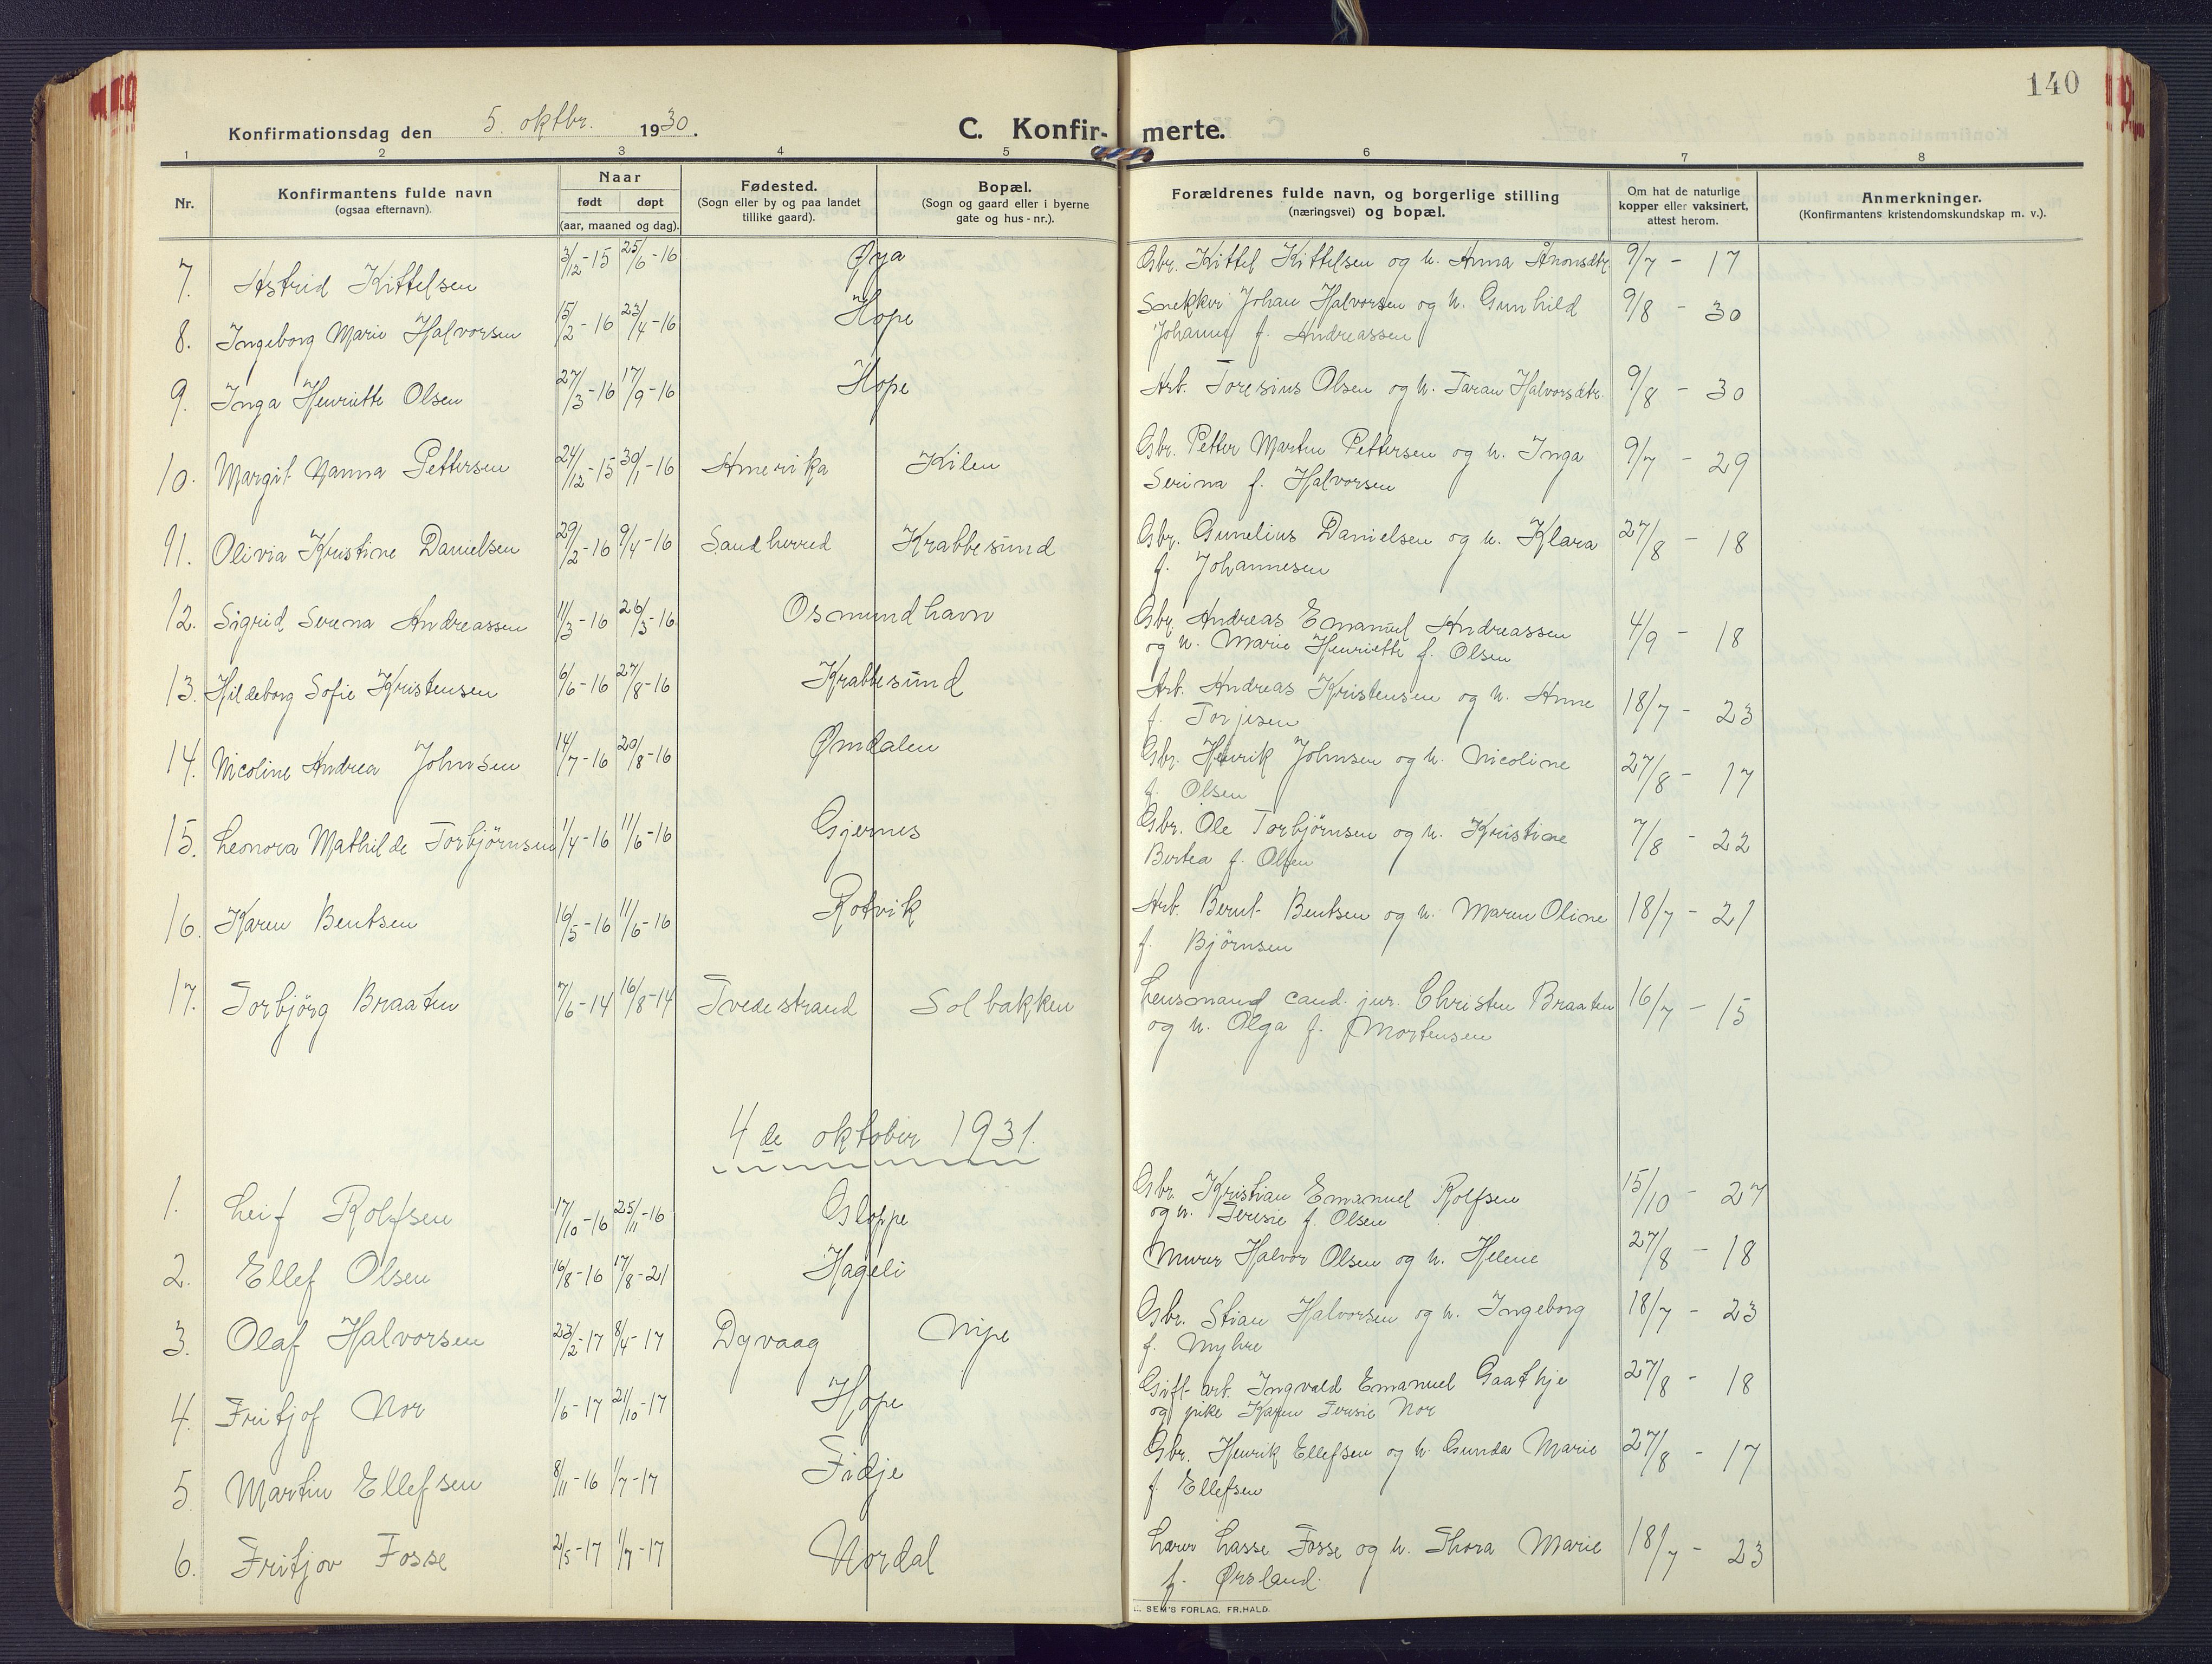 140
Konfirmationsdag den 5. oktbr. 1930.
C. Konfir- merte.
1 2 3 4 5 6 7 8
Nr.
Konfirmantens fulde navn
(ogsaa efternavn).
Naar
født døpt
(aar, maaned og dag).
Fødested.
(Sogn eller by og paa landet
tillike gaard).
Bopæl.
(Sogn og gaard eller i byerne
gate og hus - nr.).
Forældrenes fulde navn, og borgerlige stilling
(næringsvei) og bopæl.
Om hat de naturlige
kopper eller vaksinert,
attest herom.
Anmerkninger.
(Konfirmantens kristendomskundskap m. v.).
7. Astrid Kittelsen 3/12-15 25/6-16 Øya Gbr. Kittel Kittelsen og h. Anna 9/7 - 17
8. Ingeborg Marie Halvorsen 15/2-16 23/4-16 Hope Snekker Johan Halvorsen og h. Gunhild 9/8 - 30
Johanne f. Andreassen
9. Inga Henriette Olsen 27/3-16 17/9-16 Hope Arb. Toresius Olsen og h. Taran Halvorsdtr. 9/8 - 30
10. Margit Nanna Pettersen 24/12-15 30/1-16 Amerika Kilen Gbr. Petter Martin Pettersen og h. Inga 9/7 - 29
Serina f. Halvorsen
11. Olivia Kristine Danielsen 29/2-16 9/4-16 Sandherred Krabbesund Gbr. Gunelius Danielsen og h. Klara 27/8 - 18
f. Johannesen
12. Sigrid Serena Andreassen 11/3-16 26/3-16 Osmundhavn Gbr. Andreas Emanuel Andreassen 4/9 - 18
og h. Marie Henriette f. Olsen
13. Hildeborg Sofie Kristensen 6/6-16 27/8-16 Krabbesund Arb. Andreas Kristensen og h. Anne 18/7 - 23
f. Torjesen
14. Nicoline Andrea Johnsen 14/7-16 20/8-16 Ømdalen Gbr. Henrik Johnsen og h. Nicoline 27/8 - 17
f. Olsen
15. Leonora Mathilde Torbjørnsen 1/4-16 11/6-16 Gjernes Gbr. Ole Torbjørnsen og h. Kristine 7/8 - 22
Bertea f. Olsen
16. Karen Bentsen 16/5-16 11/6-16 Rotvik Arb. Bernt Bentsen og h. Maren Oline 18/7 - 21
f. Bjørnsen
17. Torbjörg Braaten 7/6-14 16/8-14 Tvedestrand Solbakken Lensmand cand. jur. Christen Braaten 16/7 - 15
og h. Olga f. Mortensen
4de oktober 1931.
1. Leif Rolfsen 17/10-16 25/11-16 Gloppe Gbr. Kristian Emanuel Rolfsen 15/10 - 27
og h. Teresie f. Olsen
2. Ellef Olsen 16/8-16 17/8-21 Hageli Murer Halvor Olsen og h. Helene 27/8 - 18
3. Olaf Halvorsen 23/2-17 8/4-17 Dyvaag Nipe Gbr. Stian Halvorsen og h. Ingeborg 18/7 - 23
f. Myhre
4. Fritjof Nor 1/6-17 21/10-17 Hope Gift arb. Ingvald Emanuel Gaathje 27/8 - 18
og pike Karen Teresie Nor
5. Martin Ellefsen 8/11-16 1/7-17 Fidje Gbr. Henrik Ellefsen og h. Gunda Marie 27/8 - 17
f. Ellefsen
6. Fritjov Fosse 2/5-17 1/7-17 Nordal Lærer Lasse Fosse og h. Thora Marie 18/7 - 23
f. Ørsland.
SEM'S FORLAG, FR.HALD.